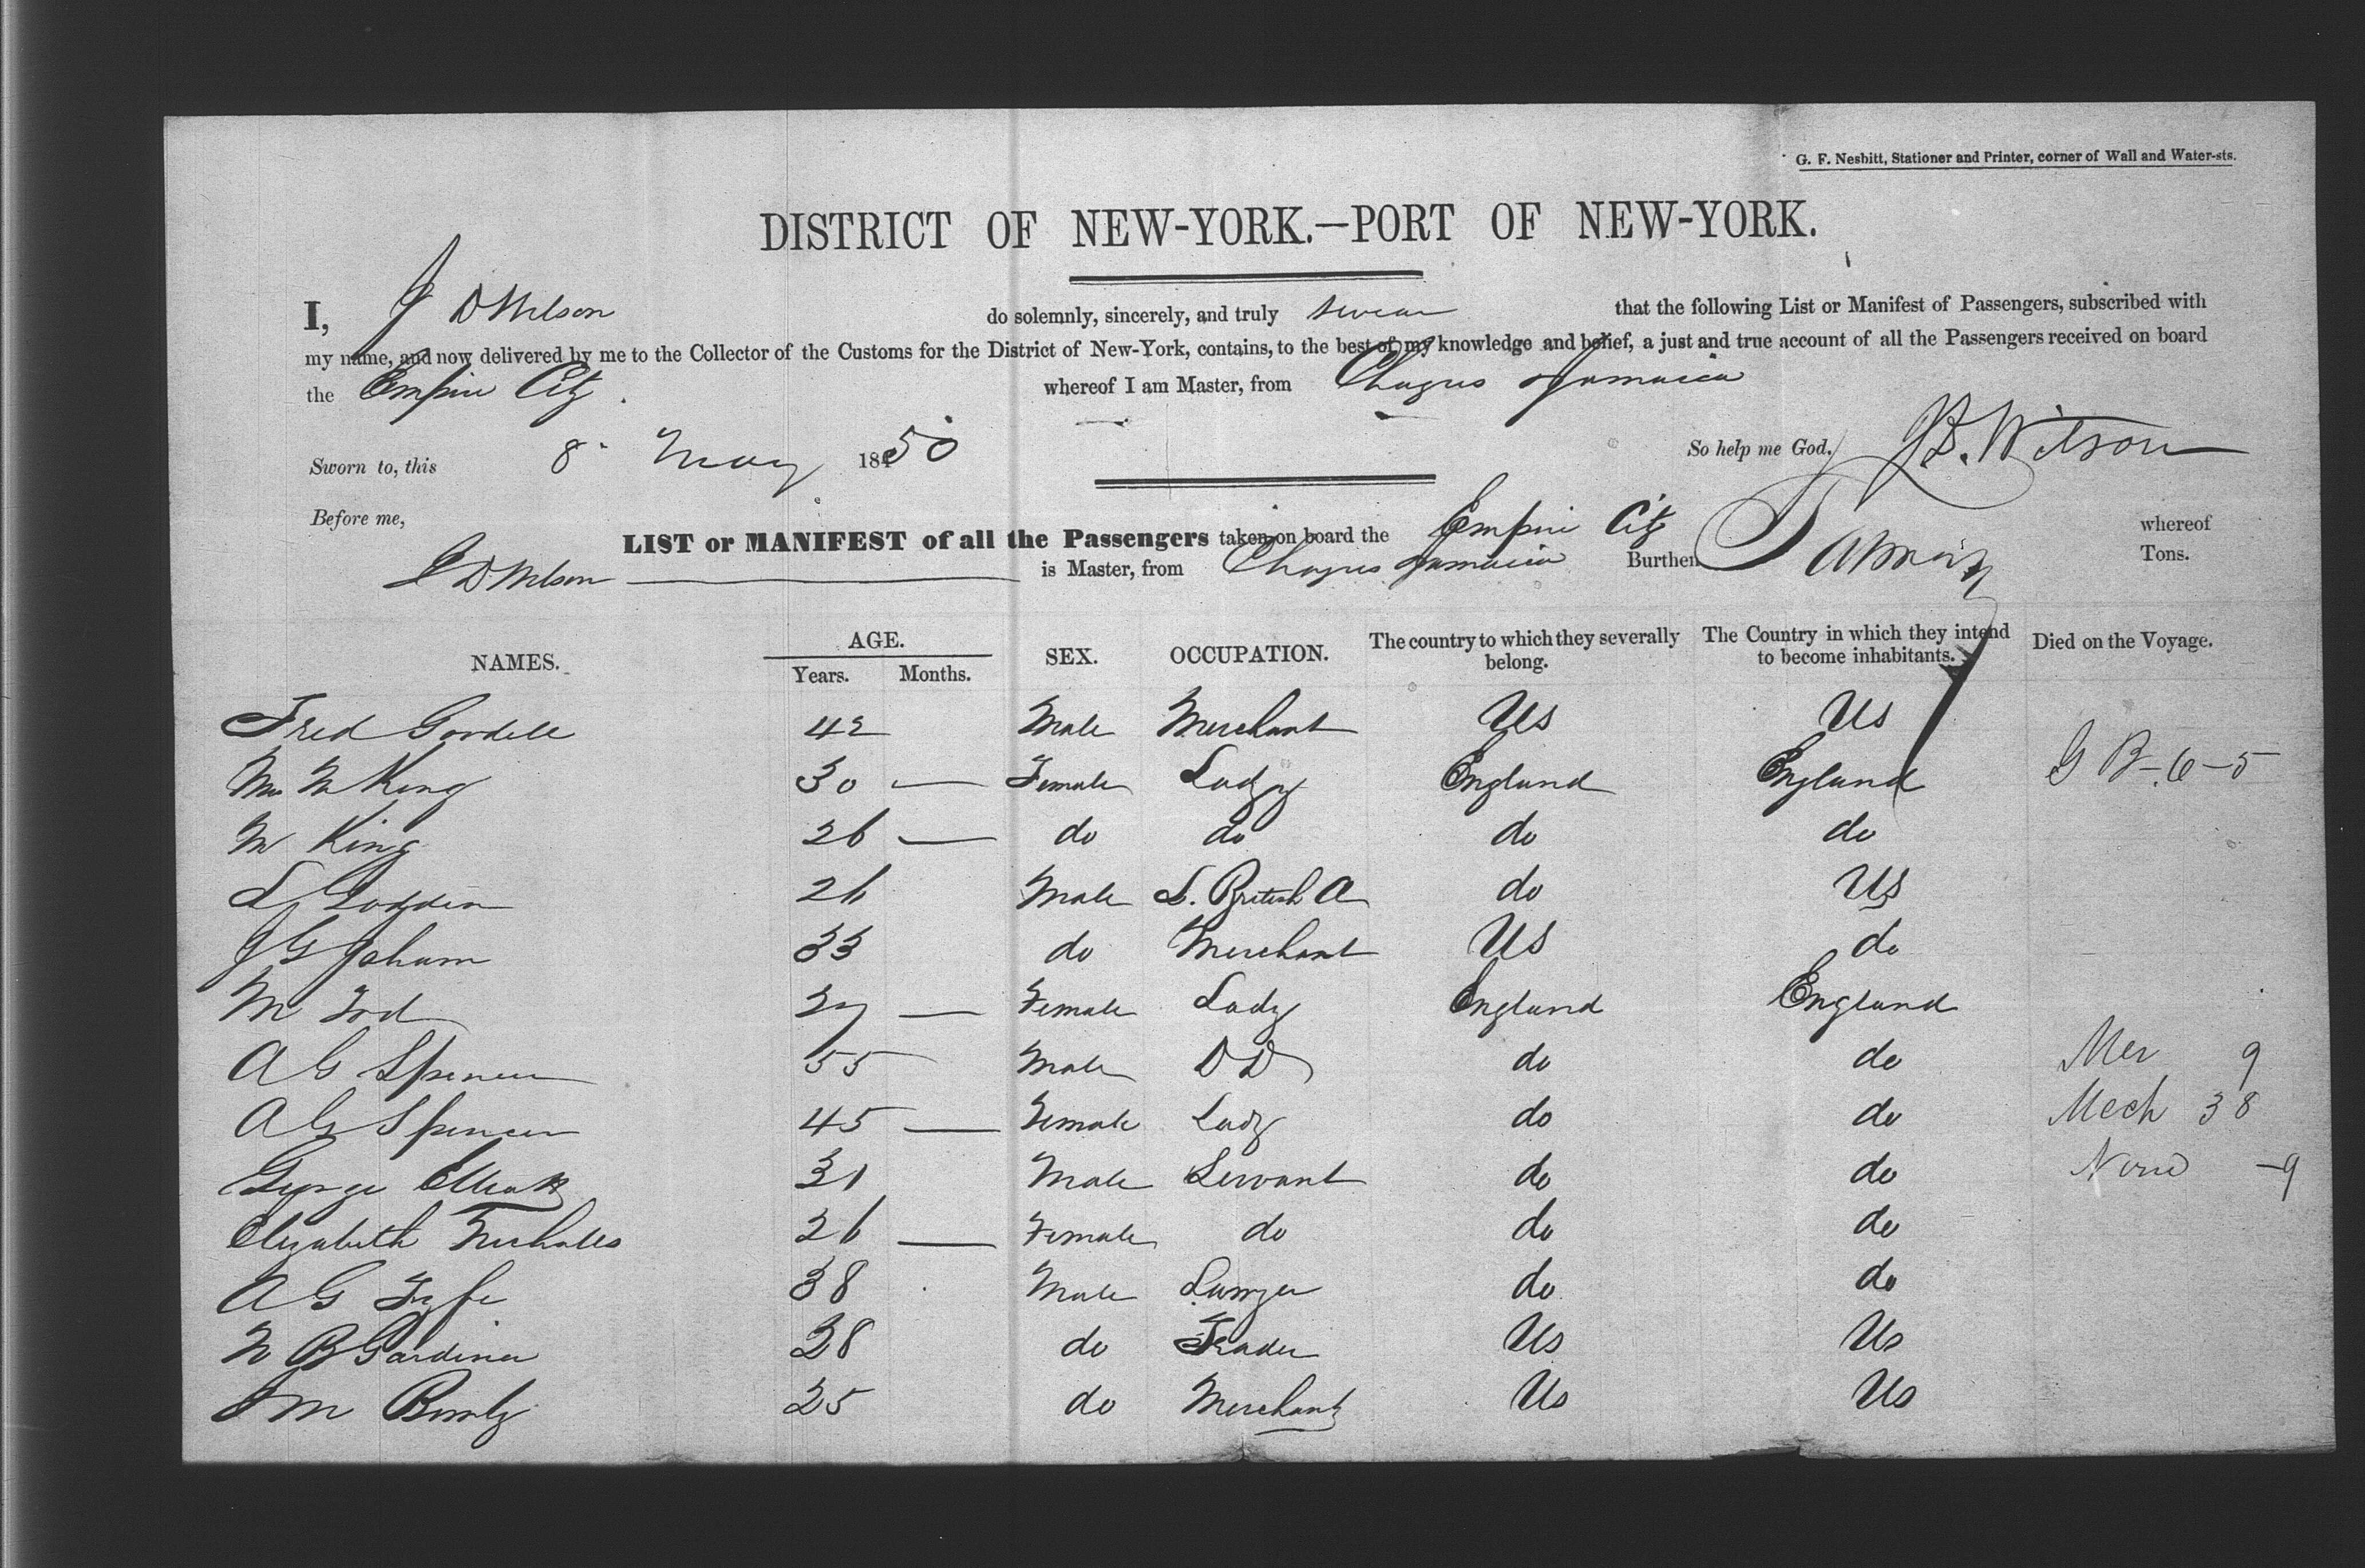 G. F. Nesbitt, Stationer and Printer, corner of Wall and Water-sts.
DISTRICT OF NEW-YORK.—PORT OF NEW-YORK.
I, J D Wilson do solemnly, sincerely, and truly swear that the following List or Manifest of Passengers, subscribed with
my name, and now delivered by me to the Collector of the Customs for the District of New-York, contains, to the best of my knowledge and belief, a just and true account of all the Passengers received on board
the Empire City. whereof I am Master, from Chagres Jamaica
Sworn to, this 8 May 1850 So help me God. J.D. Wilson
Before me,
LIST or MANIFEST of all the Passengers taken on board the Empire City whereof
J D Wilson is Master, from Chagres Jamaica Burthen Tons.
NAMES. AGE. SEX. OCCUPATION. The country to which they severally belong. The Country in which they intend to become inhabitants. Died on the Voyage.
Years. Months.
Fred Goodell 42 Male Merchant Us Us
M King 30 — Female Lady England England G B - 6 - 5
M King 26 — do do do do
L 26 Male L. British A do Us
J G 33 do Merchant Us do
M 27 — Female Lady England England
A G Spencer 55 Male D D do do Mer 9
A G Spencer 45 — Female Lady do do Mech 38
George Elliott 31 Male Servant do do None - 9
Elizabeth Nicholls 26 — Female do do do
A G Fyfe 38 Male Lawyer do do
B Gardiner 28 do Trader Us Us
M 25 do Merchant Us Us